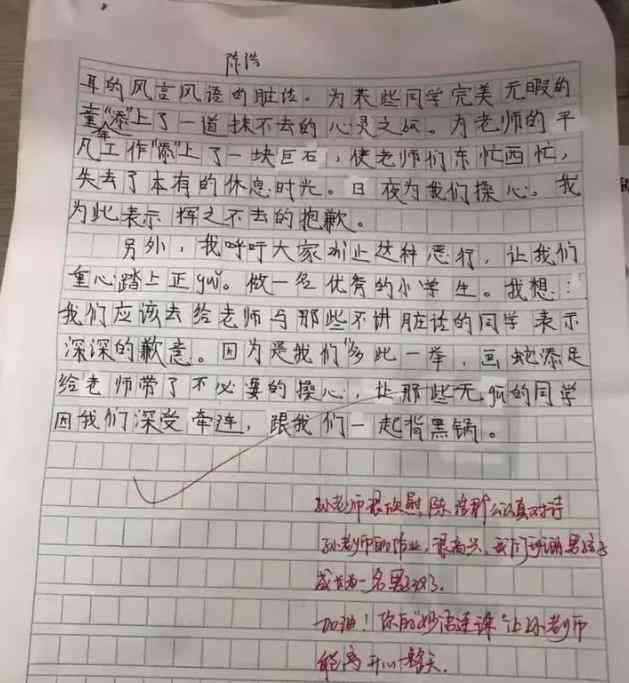 陈浩
耳的风言风语的脏话。为某些同学完美无暇的
童年"添"上了一道抹不去的心灵之灰。为老师的平
凡工作"添"上了一块巨石，使老师们东忙西忙，
失去了本有的休息时光。日夜为我们操心。我
为此表示挥之不去的抱歉。
另外，我呼吁大家制止这种恶行，让我们
重心踏上正guǐ。做一名优秀的小学生。我想：
我们应该去给老师与那些不讲脏话的同学表示
深深的歉意。因为是我们"多此一举，画蛇添足
给老师带了不必要的操心，让那些无辜的同学
因我们深受牵连，跟我们一起背黑锅。
孙老师很欣慰，陈浩能认真对待
孙老师的作业，很高兴，我们班的男孩子
成长为一名男子汉了。
加油！你的"妙语连珠"让孙老师
能够开心一整天。